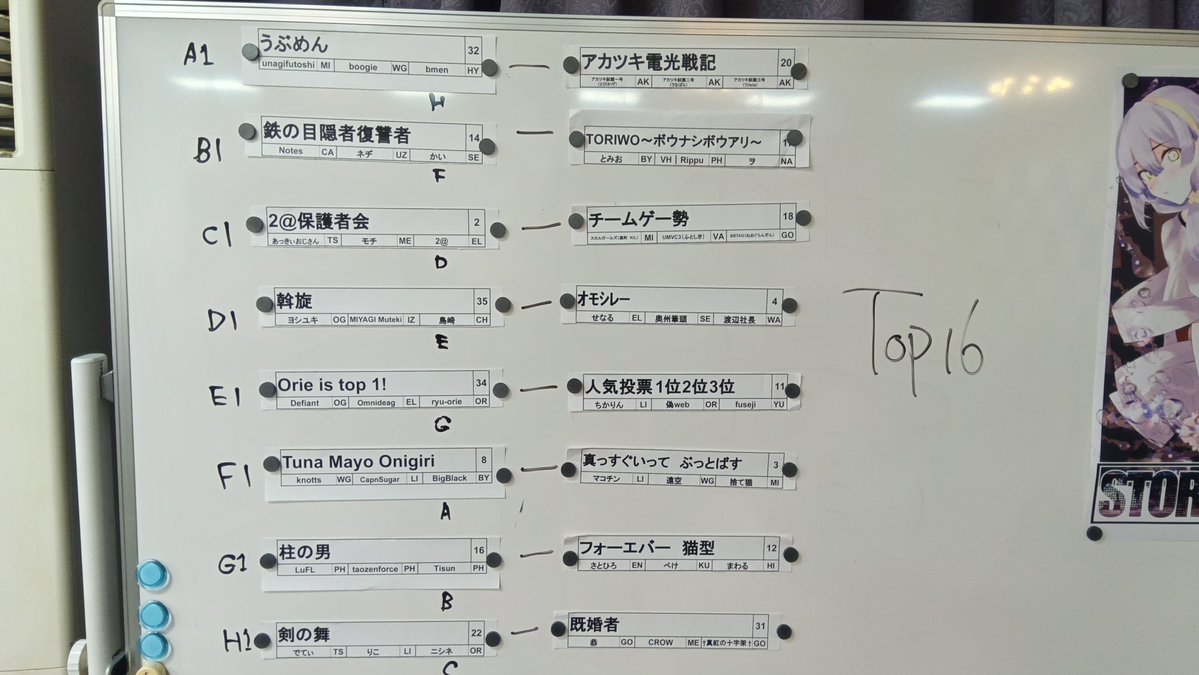 A1
うぶめん 32
unagifutoshi MI boogie WG bmen HY
H
アカツキ電光戦記 20
AK AK AK
B1
鉄の目隠者復讐者 14
Notes CA ネヂ UZ かい SE
F
TORIWO～ボウナシボウアリ～
とみお BY VH Rippu PH ヲ NA
C1
2@保護者会 2
あっきぃおじさん TS モチ ME 2@ EL
D
チームゲー勢 18
MI VA GO
D1
斡旋 35
ヨシユキ OG MIYAGI Muteki IZ 島崎 CH
E
オモシレー 4
せなる EL 奥州筆頭 SE 渡辺社長 WA
E1
Orie is top 1! 34
Defiant OG Omnideag EL ryu-orie OR
G
人気投票1位2位3位 11
ちかりん LI 偽web OR fuseji YU
F1
Tuna Mayo Onigiri 8
knotts WG CapnSugar LI BigBlack BY
A
真っすぐいって ぶっとばす 3
マコチン LI 遠空 WG 捨て猫 MI
G1
柱の男 16
LuFL PH taozenforce PH Tisun PH
B
フォーエバー 猫型 12
さとひろ EN べけ KU まわる HI
H1
剣の舞 22
でてぃ TS りこ LI ニシネ OR
C
既婚者 31
恭 GO CROW ME †真紅の十字架† GO
Top16
STOR